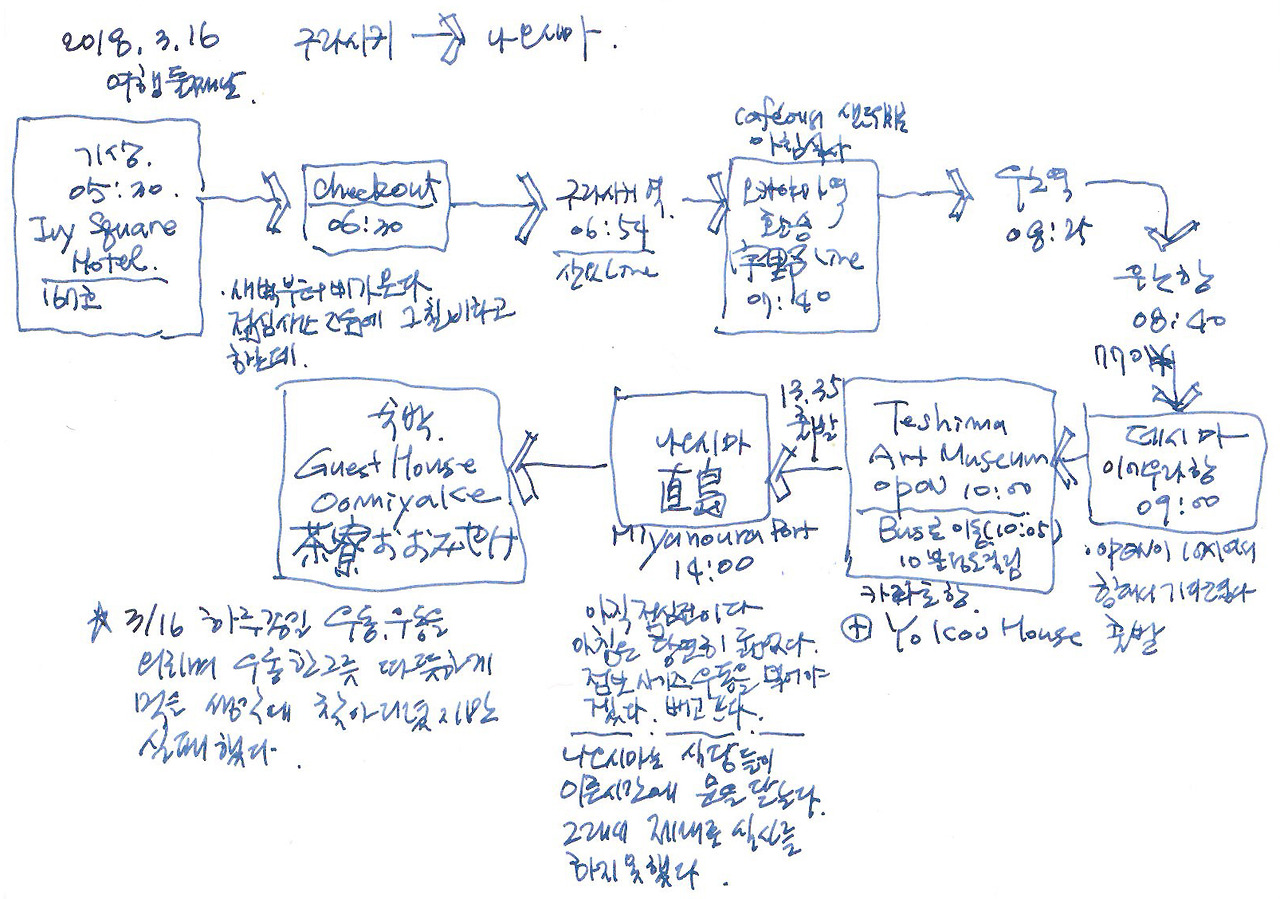 2018. 3. 16 구라시키 → 나오시마.
여행 둘째날.
기상.
05:30.
Ivy Square
Hotel.
167호
Checkout
06:30
·새벽부터 비가 온다
점심시간 즈음에 그칠 비라고
하는데.
구라시키 역.
06:54
산요Line
샌드위치
아침식사
오카야마역
환승
宇野Line
07:40
우노역
08:25
우노항
08:40
데시마
이에우라항
09:00
·OPEN이 10시여서
항에서 기다렸다
Teshima
Art Museum
OPEN 10:00
Bus로 이동(10:05)
10분정도걸림
카라토항.
⊕ Yokoo House 출발
13.35
출발
나오시마
直島
Miyanoura Port
14:00
아직 점심전이다
아침은 당연히
점보사이즈 우동을 먹어야
겠다. 배고프다.
나오시마는 식당들이
이른시간에 문을 닫는다.
그래서 제대로 식사를
하지 못했다.
숙박.
Guest House
Oomiyake
茶寮おおみやけ
★ 3/16 하루종일 우동, 우동을
외치며 우동 한그릇 따뜻하게
먹을 생각에 찾아다녔지만
실패했다.